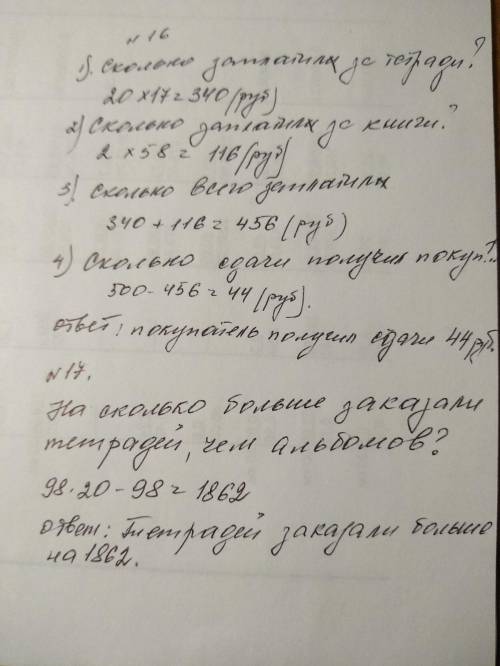 №16
1). Сколько заплатили за тетради?
20 × 17 = 340 (руб)
2) Сколько заплатили за книги?
2 × 58 = 116 (руб)
3). Сколько всего заплатили
340 + 116 = 456 (руб)
4) Сколько сдачи получил покуп.?
500 - 456 = 44 (руб).
ответ: покупатель получил сдачи 44 руб.
№17.
На сколько больше заказали
тетрадей, чем альбомов?
98 · 20 - 98 = 1862
ответ: Тетрадей заказали больше
на 1862.